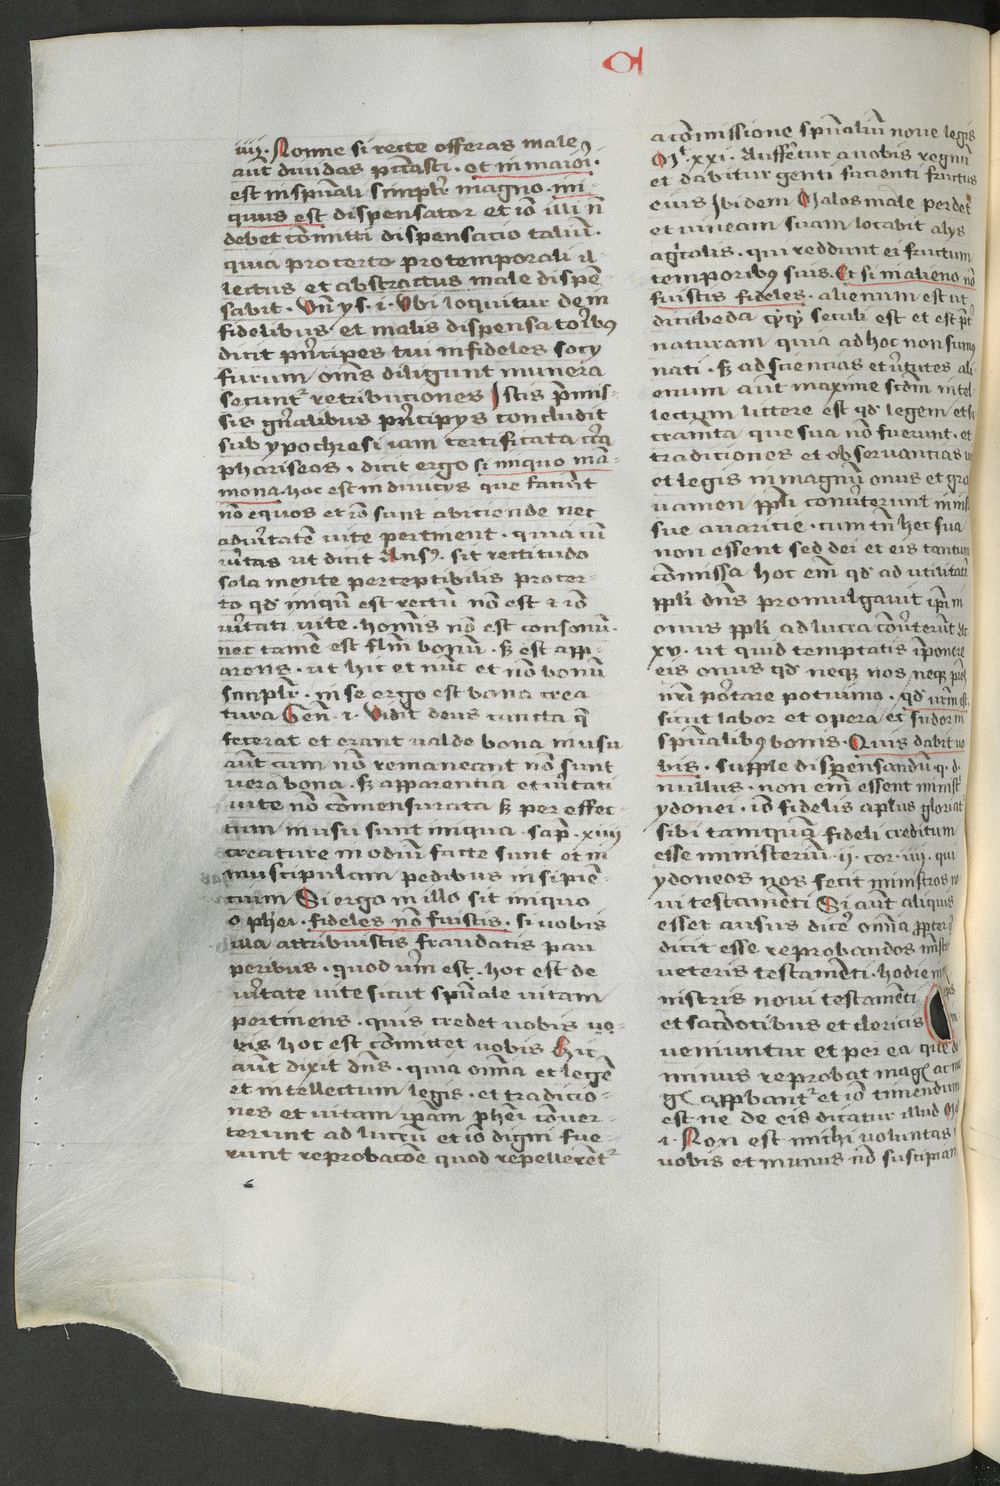 iiij. Nonne si recte offeras male
aūt diuidas pc̄casti. et in maiori.
est in spūali simplr̄ magno. ini-
quus est dispensator et iō illi n̄
debet cōmitti dispensacio taliū.
quia pro certo pro temporali il
lectus et abstractus male dispē-
sabit. Vn̄ ys. i. Vbi loquitur de in
fidelibus et malis dispensatoribꝰ
dicit prīcipes tui infideles socij
furum oīns diligunt munera
secunt᷑ retribuciones Istis p̄mis-
sis gn̄alibus prīcipijs concludit
sub ypochresi iam certificata cōtra
phariseos. dicit ergo si iniquo mā-
mona. hoc est in diuicijs que faciūt
nō equos et iō sunt abiciende nec
ad vītatē vite pertinent. quia cū
vītas ut dicit Ansꝰ. sit rectitudo
sola mente perceptibilis pro cer-
to qd̄ iniqū est rectū nō est et iō
vītati vite. hominis nō est consonū.
nec tamē est flīm bonū. sꝫ est app-
arens. ut hic et nūc et nō bonū
simplr̄. in se ergo est bona crea
tura Gen̄. i. Vidit deus cuncta q̄
fecerat et erant valde bona in usu
aūt cum nō remaneant nō sunt
vera bona. sꝫ apparentia et vītati
vite nō cōmensurata sꝫ per effec-
tum in usu sunt iniqua. sap̄. xiiij
creature in odiū facte sunt et in
muscipulam pedibus insipiē-
cium Si ergo in illo sit iniquo
o pħei. fideles nō fuistis. si vobis
illa attribuistis fraudatis pau
peribus. quod vīm est. hoc est de
vītate vite sicut spūale vitam
pertinens. quis credet vobis vo-
bis hoc est cōmittet vobis Hic
aūt dixit dn̄s. quia om̄ia et legē
et intellectum legis. et tradicio-
nes et vitam ip̄am pħei cōuer-
terunt ad lucrū et iō digni fue-
runt reprobacōe quod repellerent᷑
a cōmissione spūaliū noue legis
Mt. xxi. Aufferetur a vobis regnū
et dabitur genti facienti fructus
eius Ibidem Malos male perdet
et vineam suam locabit alijs
agricolis. qui reddunt ei fructum
temporibꝰ suis. Et si in alieno nō
fuistis fideles. alienum est ut
dicit beda seculi est et est
naturam quia ad hoc non sumꝰ
nati. sꝫ ad sciencias et v̄tutes ali
enum aūt maxime scdm̄ intel
lectum littere est qd̄ legem et
que sua nō fuerunt. et
tradiciones et obseruancias
et legis in magnū onus et gra
uamen ppl̄i conūterunt
sue auaricie. cum tn̄ hec sua
non essent sed dei et eis tantum
cōmissa hoc em̄ qd̄ ad vtilitatē
ppl̄i dn̄s promulgauit ip̄i in
onus ppl̄i ad lucra cōūterūt
xv. ut quid temptatis īponere
eis onus qd̄ neqꝫ nos neqꝫ
nr̄i portare potuimꝰ. qd̄ vr̄m est.
sicut labor et opera et sudor in
spūalibꝰ bonis. Quis dabit vo
bis. supple dispensandū q. d.
nullus. non em̄ essent
ydonei. iō fidelis ap̄lus gloriat᷑
sibi tamquā fideli creditum
esse ministeriū. ij. cor. iij. qui
ydoneos nos fecit ministros no
ui testamēti Si aūt aliquis
esset ausus dicē om̄ia
dicit esse reprobandos
veteris testamēti. hodie mi
nistris noui testamēti
et sacerdotibus et clericis
veniuntur et per ea que
minus reprobat
appbant᷑ et iō timendum
est ne de eis dicatur illud
i. Non est michi voluntas
vobis et munus nō suscipiam